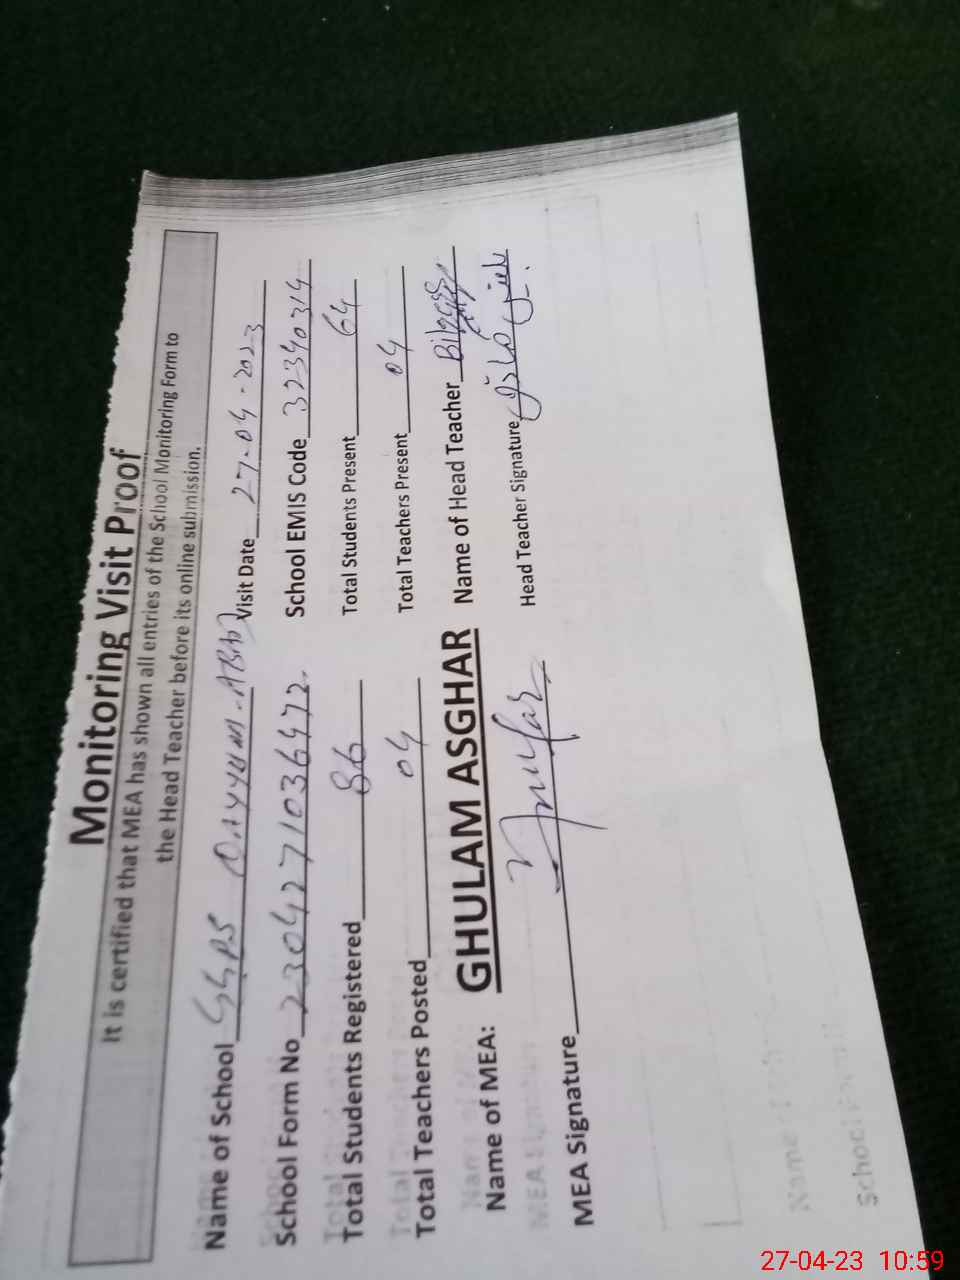 Monitoring Visit Proof
It is certified that MEA has shown all entries of the School Monitoring Form to
the Head Teacher before its online submission.
Name of School GGPS QAYYUM-ABAD Visit Date 27-04-2023
School Form No 2304271036472 School EMIS Code 32340314
Total Students Registered 86 Total Students Present 64
Total Teachers Posted 04 Total Teachers Present 04
Name of MEA: GHULAM ASGHAR Name of Head Teacher
MEA Signature Head Teacher Signature
27-04-23 10:59